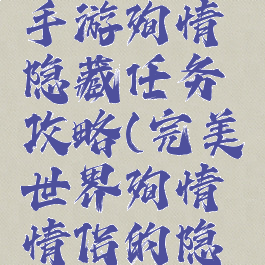 手游殉情
隐藏任务
攻略(完美
世界殉情
情侣的隐